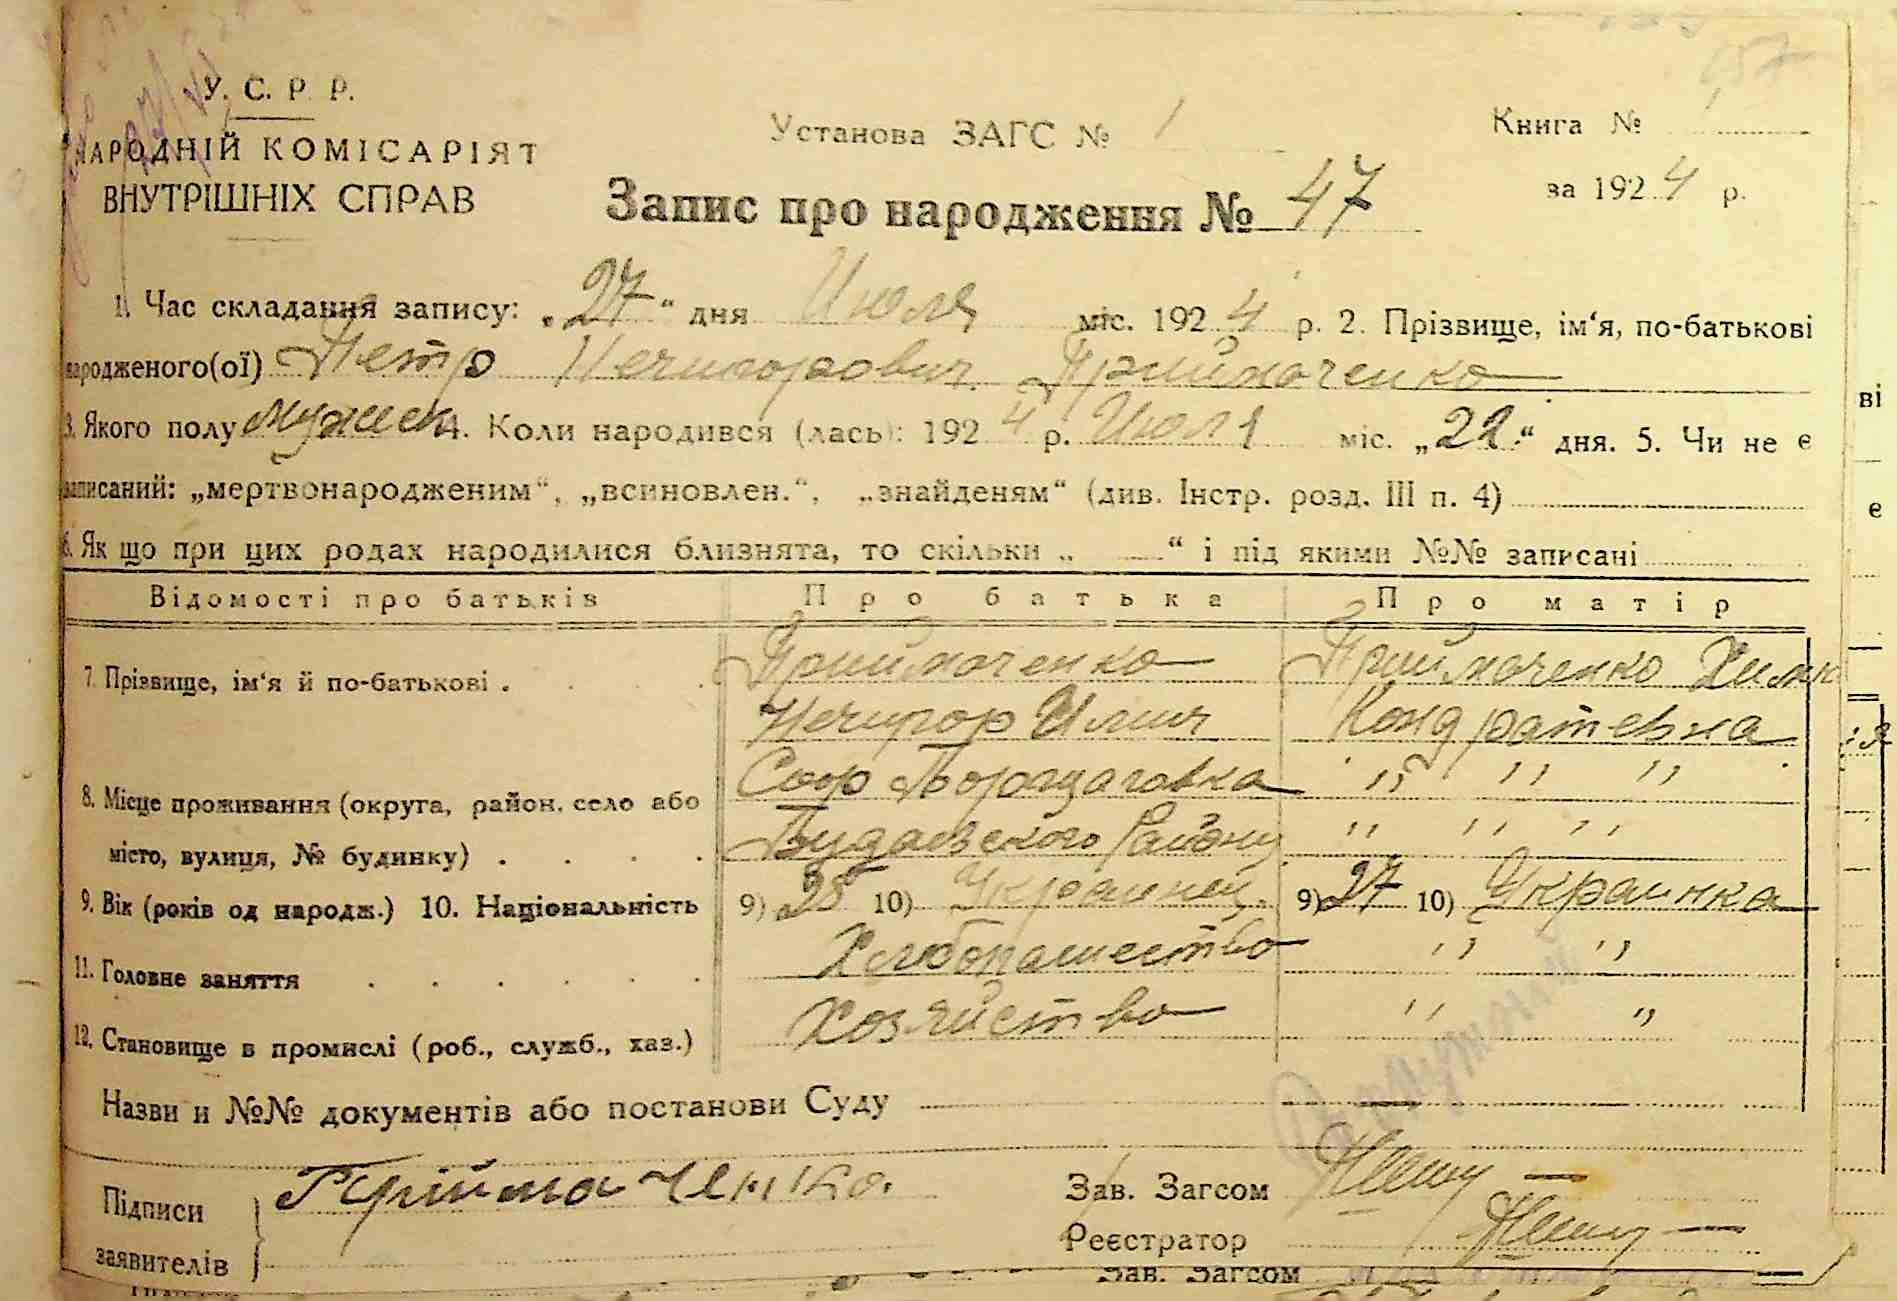 У. С. Р. Р.
НАРОДНІЙ КОМІСАРІЯТ
ВНУТРІШНІХ СПРАВ
Установа ЗАГС № 1
Книга №
за 1924 р.
Запис про народження № 47
1. Час складання запису: „27“ дня Июля міс. 1924 р. 2. Прізвище, ім‘я, по-батькові
народженого(ої) Петр Нечипорович Приймаченко
3. Якого полу мужск 4. Коли народився (лась): 1924 р. Июля міс. „22“ дня. 5. Чи не є
записаний: „мертвонародженим“, „всиновлен.“, „знайденям“ (див. Інстр. розд. III п. 4)
6. Як що при цих родах народилися близнята, то скільки „ — “ і під якими №№ записані
Відомості про батьків Про батька Про матір
7. Прізвище, ім‘я й по-батькові . Приймаченко Приймаченко Хима
Нечипор Илич Кондратевна
8. Місце проживання (округа, район, село або Соф Борщаговка " " "
місто, вулиця, № будинку) . Будаевского Району " " "
9. Вік (років од народж.) 10. Національність 9) 28 10) Украинец. 9) 27 10) Украинка
11. Головне заняття Хлебопашество " "
12. Становище в промислі (роб., служб., хаз.) Хозяйство " "
Назви и №№ документів або постанови Суду
Підписи
заявителів
Пріймаченко.
Зав. Загсом
Реєстратор
Зав. Загсом